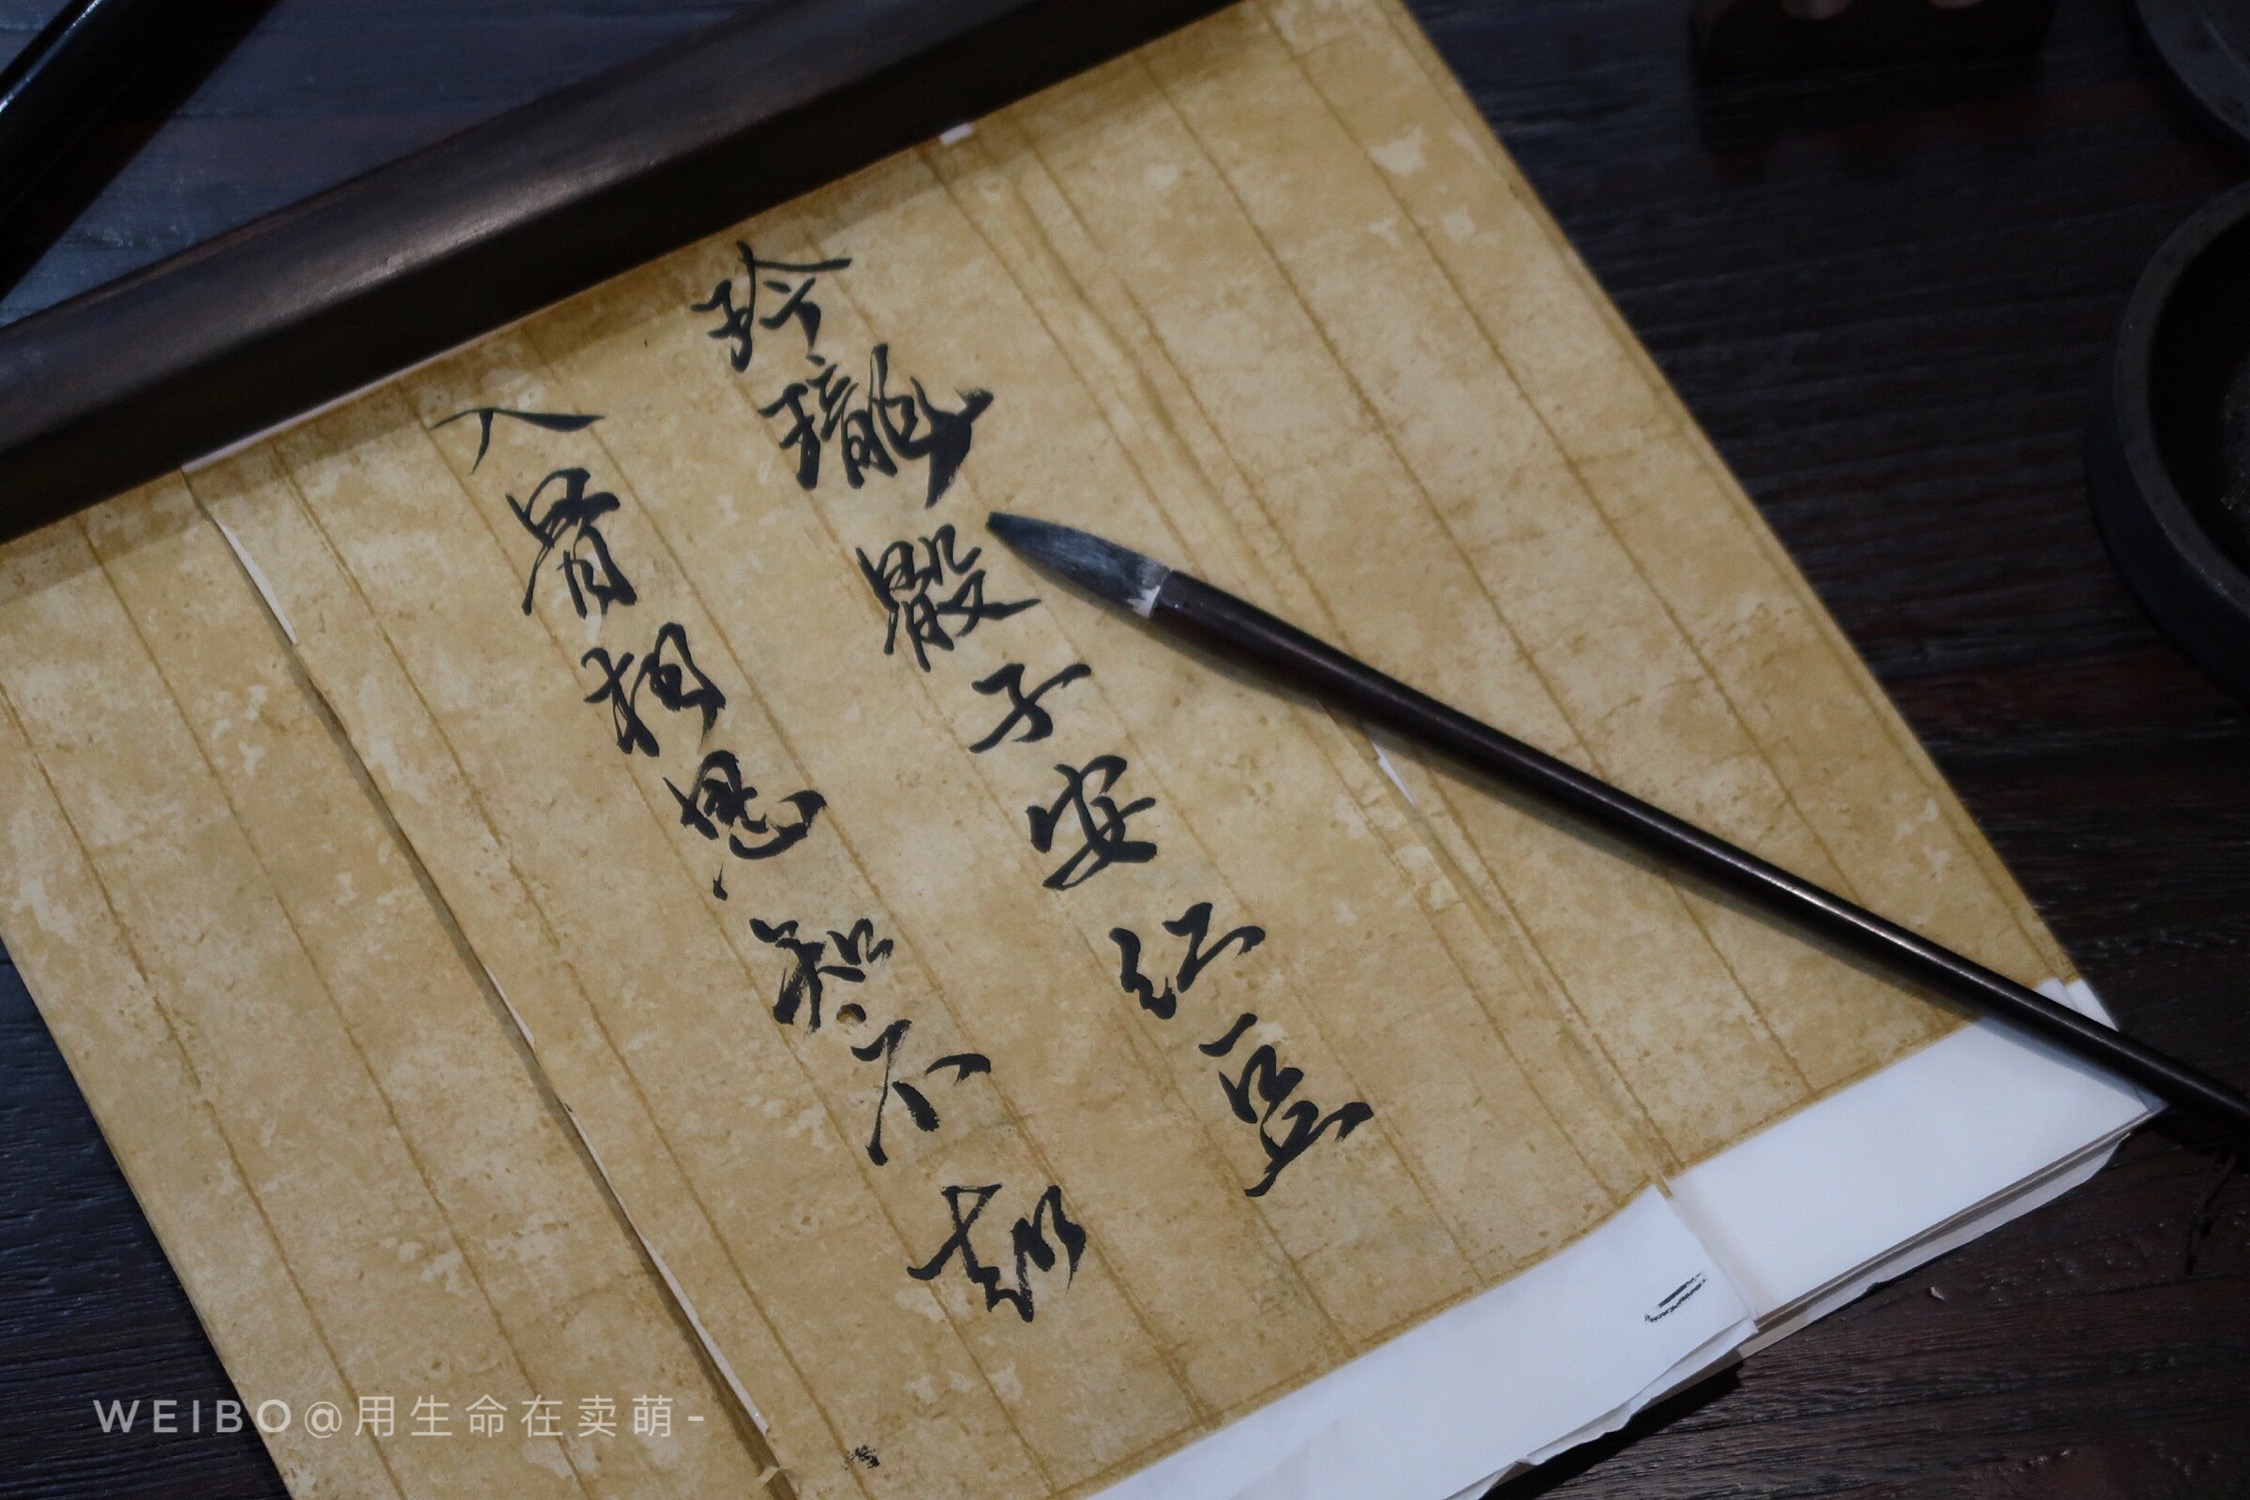 玲瓏骰子安红豆
入骨相思知不知
WEIBO@用生命在卖萌-